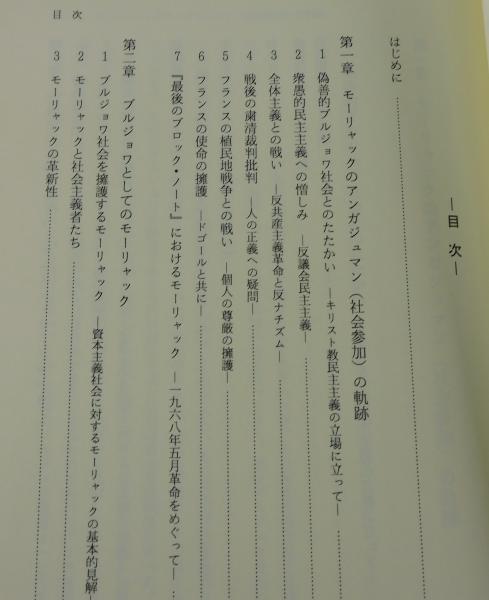 ―目 次―
はじめに
第一章 モーリャックのアンガジュマン（社会参加）の軌跡
1 偽善的ブルジョワ社会とのたたかい ―キリスト教民主主義の立場に立って―
2 衆愚的民主主義への憎しみ ―反議会民主主義―
3 全体主義との戦い ―反共産主義革命と反ナチズム―
4 戦後の粛清裁判批判 ―人の正義への疑問―
5 フランスの植民地戦争との戦い ―個人の尊厳の擁護―
6 フランスの使命の擁護 ―ドゴールと共に―
7 『最後のブロック・ノート』におけるモーリャック ―一九六八年五月革命をめぐって―
第二章 ブルジョワとしてのモーリャック
1 ブルジョワ社会を擁護するモーリャック ―資本主義社会に対するモーリャックの基本的見解―
2 モーリャックと社会主義者たち
3 モーリャックの革新性
目 次